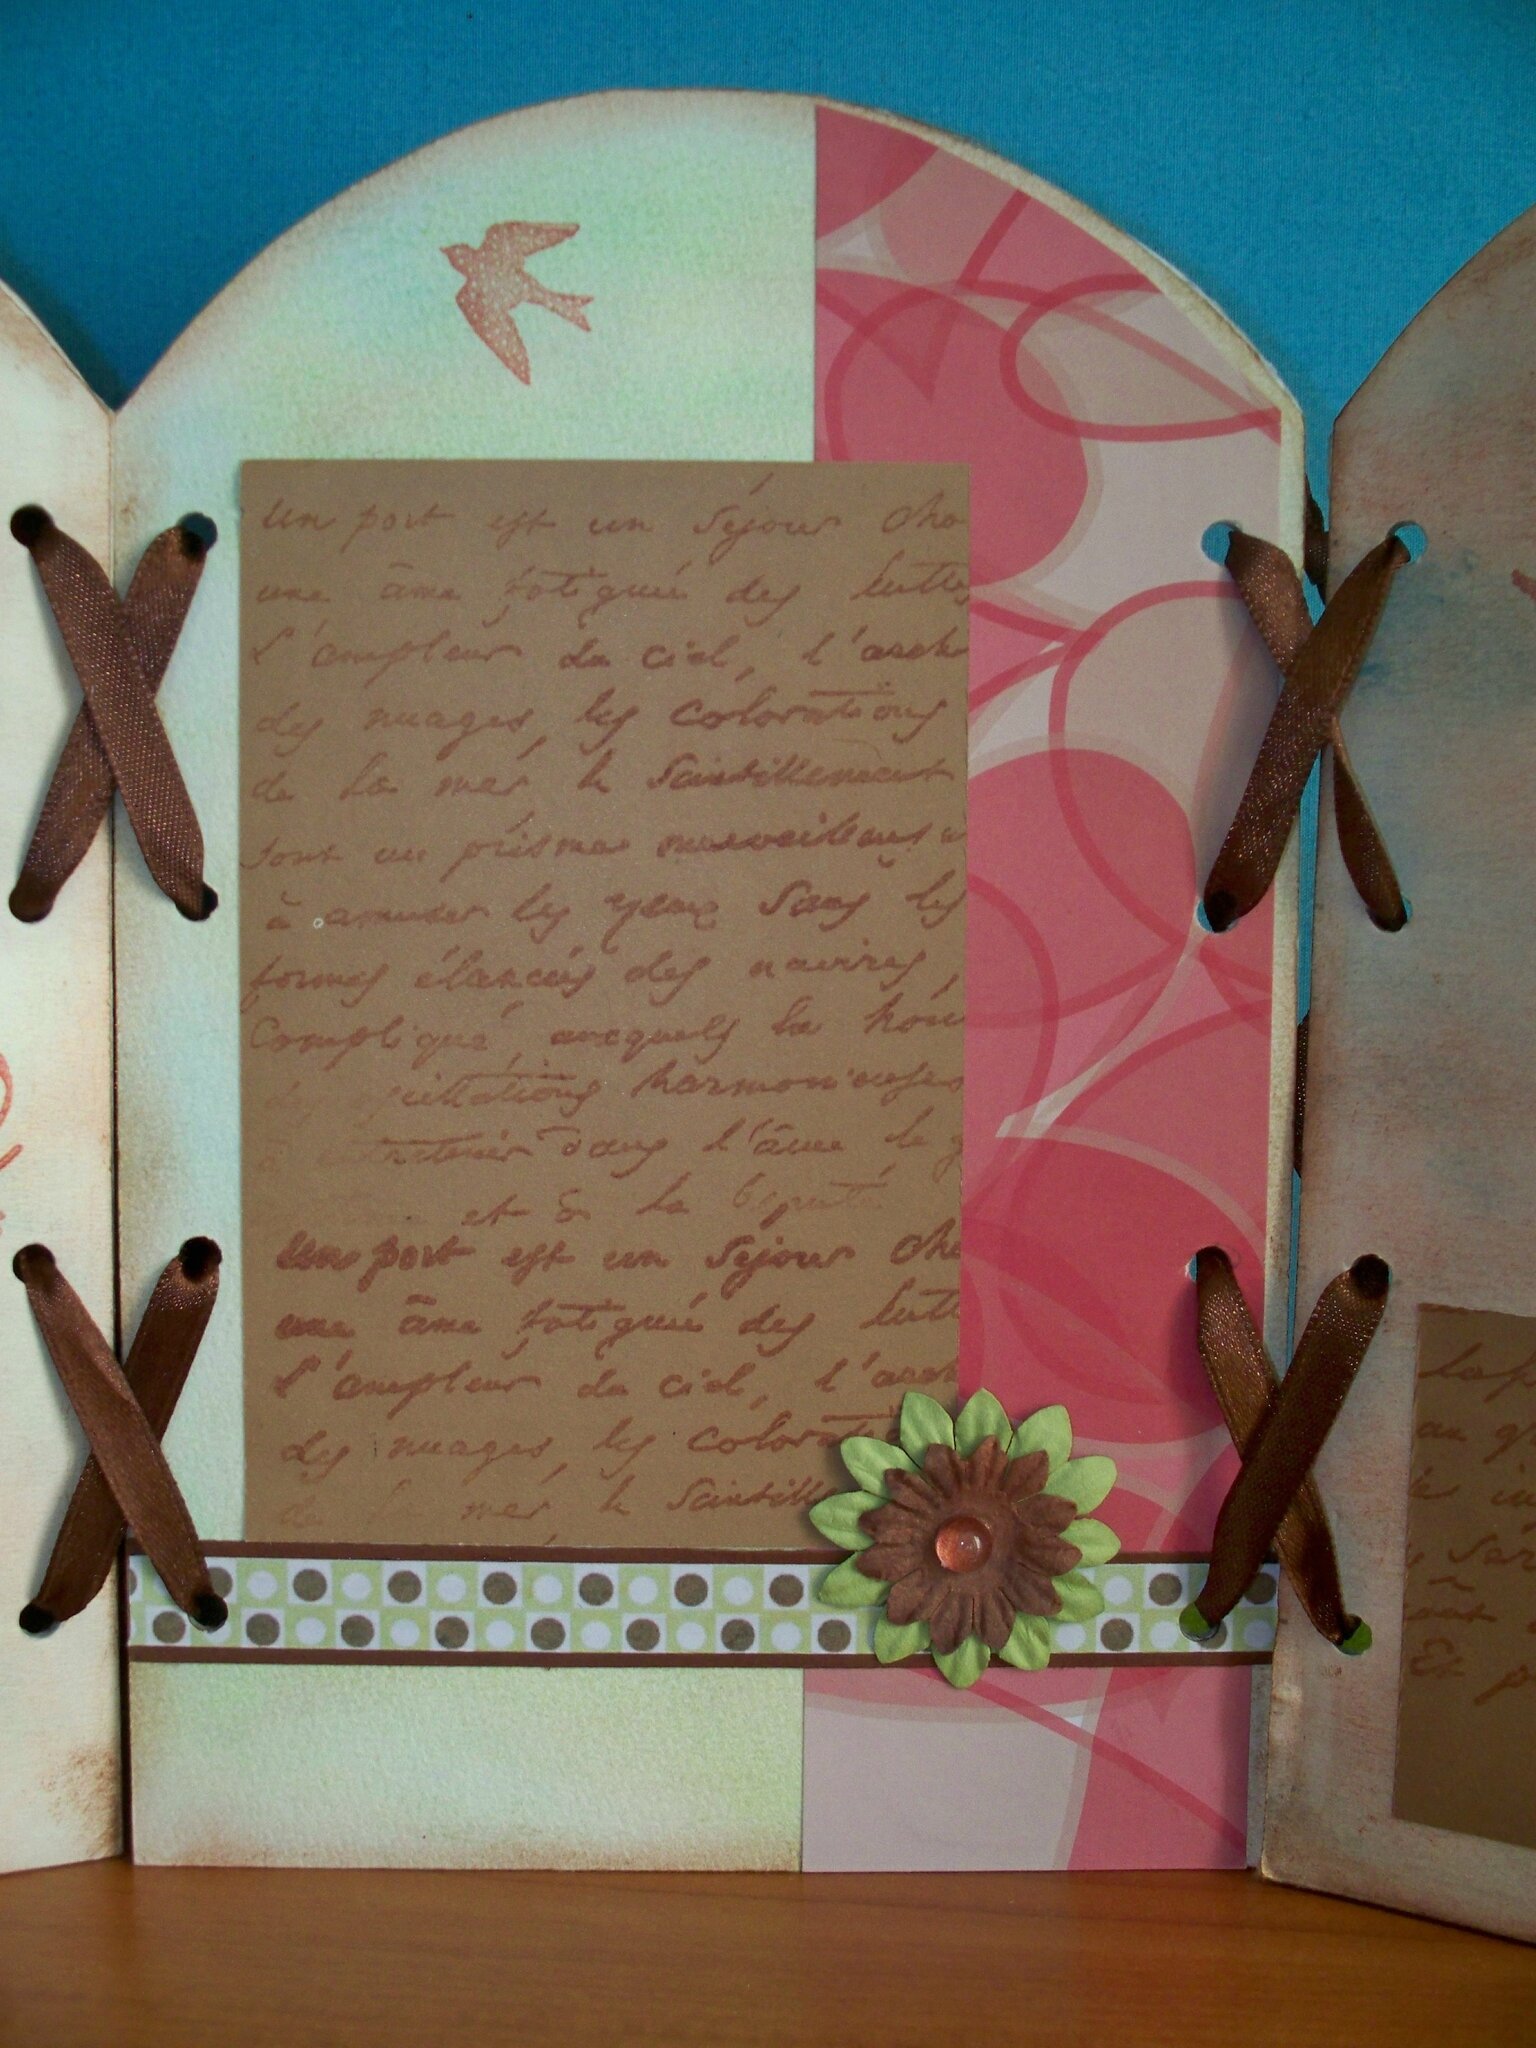 Un port est un séjour cha
une âme fatiguée des lutte
l'ampleur du ciel, l'arch
des nuages, les colorations
de la mer, le scintillement
sont un prisme merveilleux
à amuser les yeux sans les
formes élancées des navires,
compliqué, auxquels la houl
des oscillations harmonieuses
à entretenir dans l'âme le g
et de la beauté
Un port est un séjour cha
une âme fatiguée des lutt
l'ampleur du ciel, l'arch
des nuages, les colorat
de la mer, le scintill
Et p